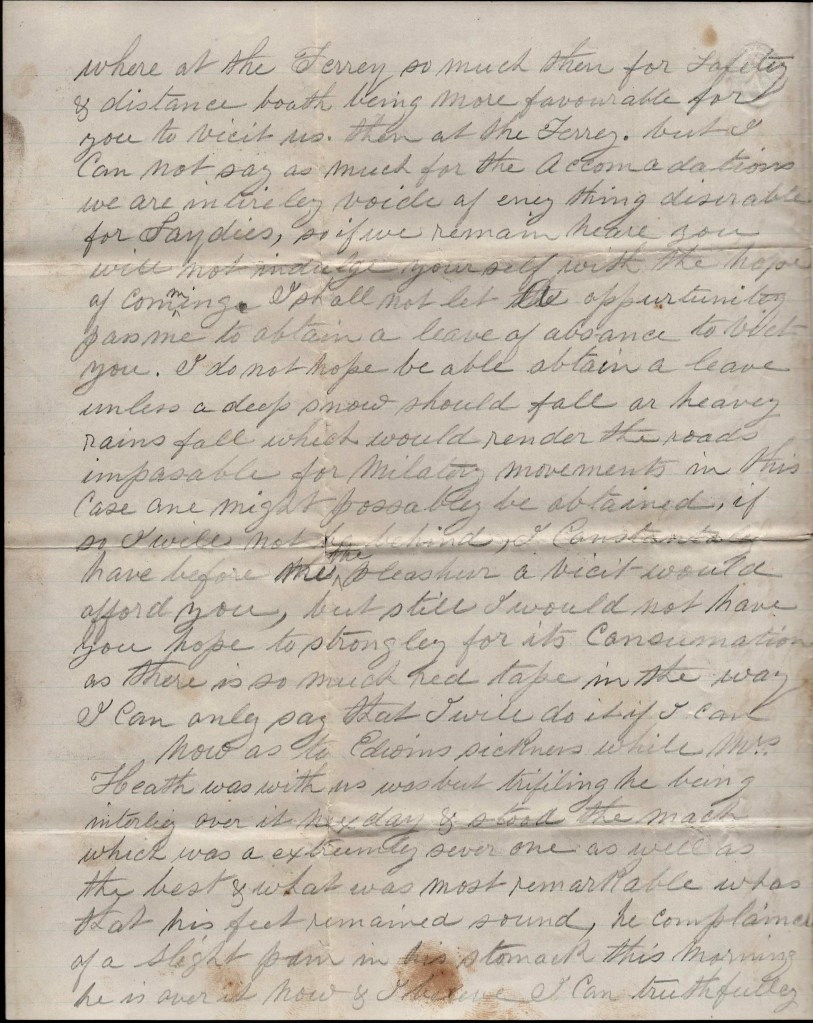 where at the Ferrey so much then for Safetey
& distance boath being more favourable for
you to vicit us. then at the Ferrey. but I
Can not say as much for the Accomadations
we are intireley voide of eney thing diserable
for Laydies, so if we remain heare you
will not indulge yourself with the hope
of Comminge I shall not let an oppurtunitey
pass me to obtain a leave of absance to vicit
you. I do not hope be able obtain a leave
unless a deep snow should fall or heavey
rains fall which would render the roads
impasable for Milatery movements in this
Case one might possabley be obtained, if
so I will not be behind, I Constantly
have before me the pleashur a vicit would
afford you, but still I would not have
you hope to strongley for its Consumation
as there is so much red tape in the way
I Can only say that I will do it if I can
Now as to Edwins sickness while Mrs.
Heath was with us was but trifiling he being
interley over it nex day & stood the mach
which was a extreamly sever one as well as
the best & what was most remarkable whas
that his feet remained sound, he complaines
of a slight pain in his stomack this morning
he is over it now & I believe I Can truthfulley